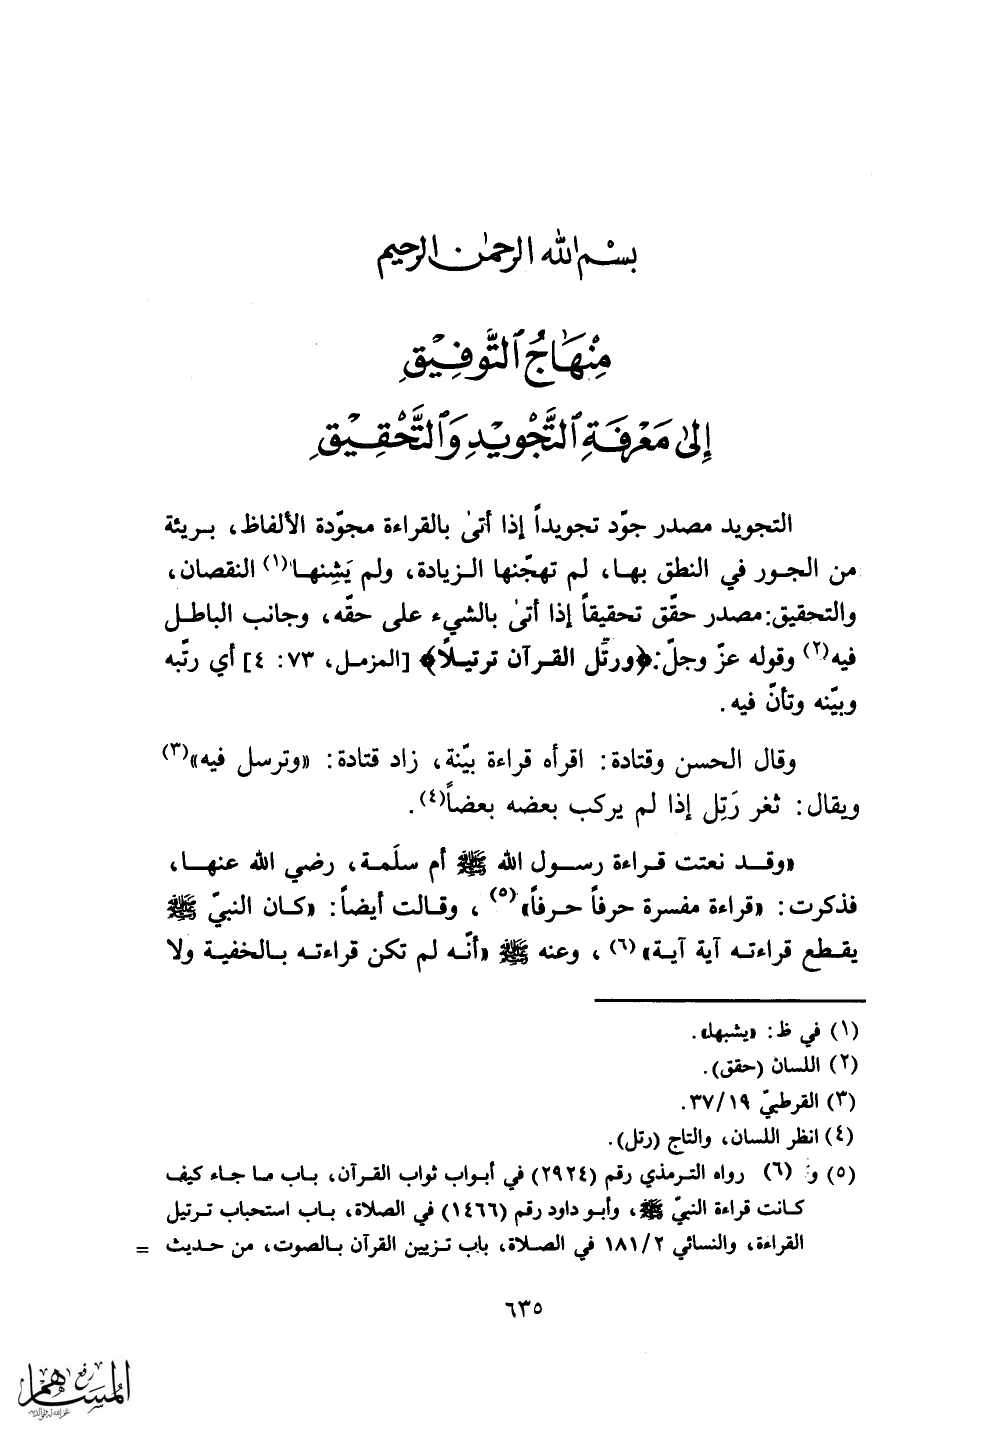 بسم الله الرحمن الرحيم
مِنْهَاجُ التَّوفِيْقِ
إِلىٰ مَعْرِفَةِ التَّجْوِيْدِ وَالتَّحْقِيْقِ
التجويد مصدر جوّد تجويداً إذا أتىٰ بالقراءة مجوّدة الألفاظ، بريئة
من الجور في النطق بها، لم تهجّنها الزيادة، ولم يَشِنها(١) النقصان،
والتحقيق: مصدر حقّق تحقيقاً إذا أتىٰ بالشيء على حقّه، وجانب الباطل
فيه(٢) وقوله عزّ وجلّ: ﴿ورتّل القرآن ترتيلًا﴾ [المزمل، ٧٣: ٤] أي رتّبه
وبيّنه وتأنّ فيه.
وقال الحسن وقتادة: اقرأه قراءة بيّنة، زاد قتادة: «وترسل فيه»(٣)
ويقال: ثغر رَتِل إذا لم يركب بعضه بعضاً(٤).
«وقد نعتت قراءة رسول الله ﷺ أم سلَمة، رضي الله عنها،
فذكرت: «قراءة مفسرة حرفاً حرفاً»(٥)، وقالت أيضاً: «كان النبيّ ﷺ
يقطع قراءته آية آية»(٦)، وعنه ﷺ «أنّه لم تكن قراءته بالخفية ولا
(١) في ظ: «يشبها».
(٢) اللسان (حقق).
(٣) القرطبيّ ٣٧/١٩.
(٤) انظر اللسان، والتاج (رتل).
(٥) و (٦) رواه الترمذي رقم (٢٩٢٤) في أبواب ثواب القرآن، باب ما جاء كيف
كانت قراءة النبيّ ﷺ، وأبو داود رقم (١٤٦٦) في الصلاة، باب استحباب ترتيل
القراءة، والنسائي ١٨١/٢ في الصلاة، باب تزيين القرآن بالصوت، من حديث =
٦٣٥